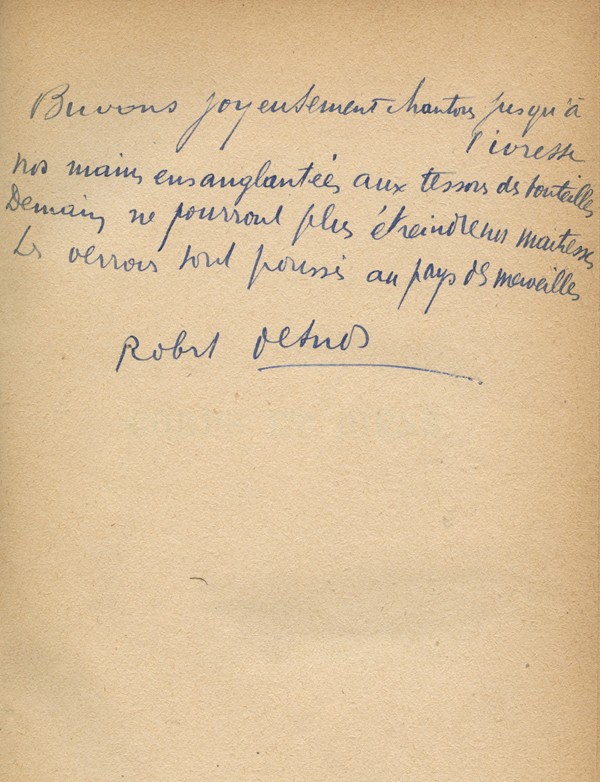 Buvons joyeusement chantons jusqu'à
l'ivresse
nos mains ensanglantées aux tessons des bouteilles
Demain ne pourront plus étreindre nos maitresses
Les verrous sont poussés au pays des merveilles
Robert Desnos